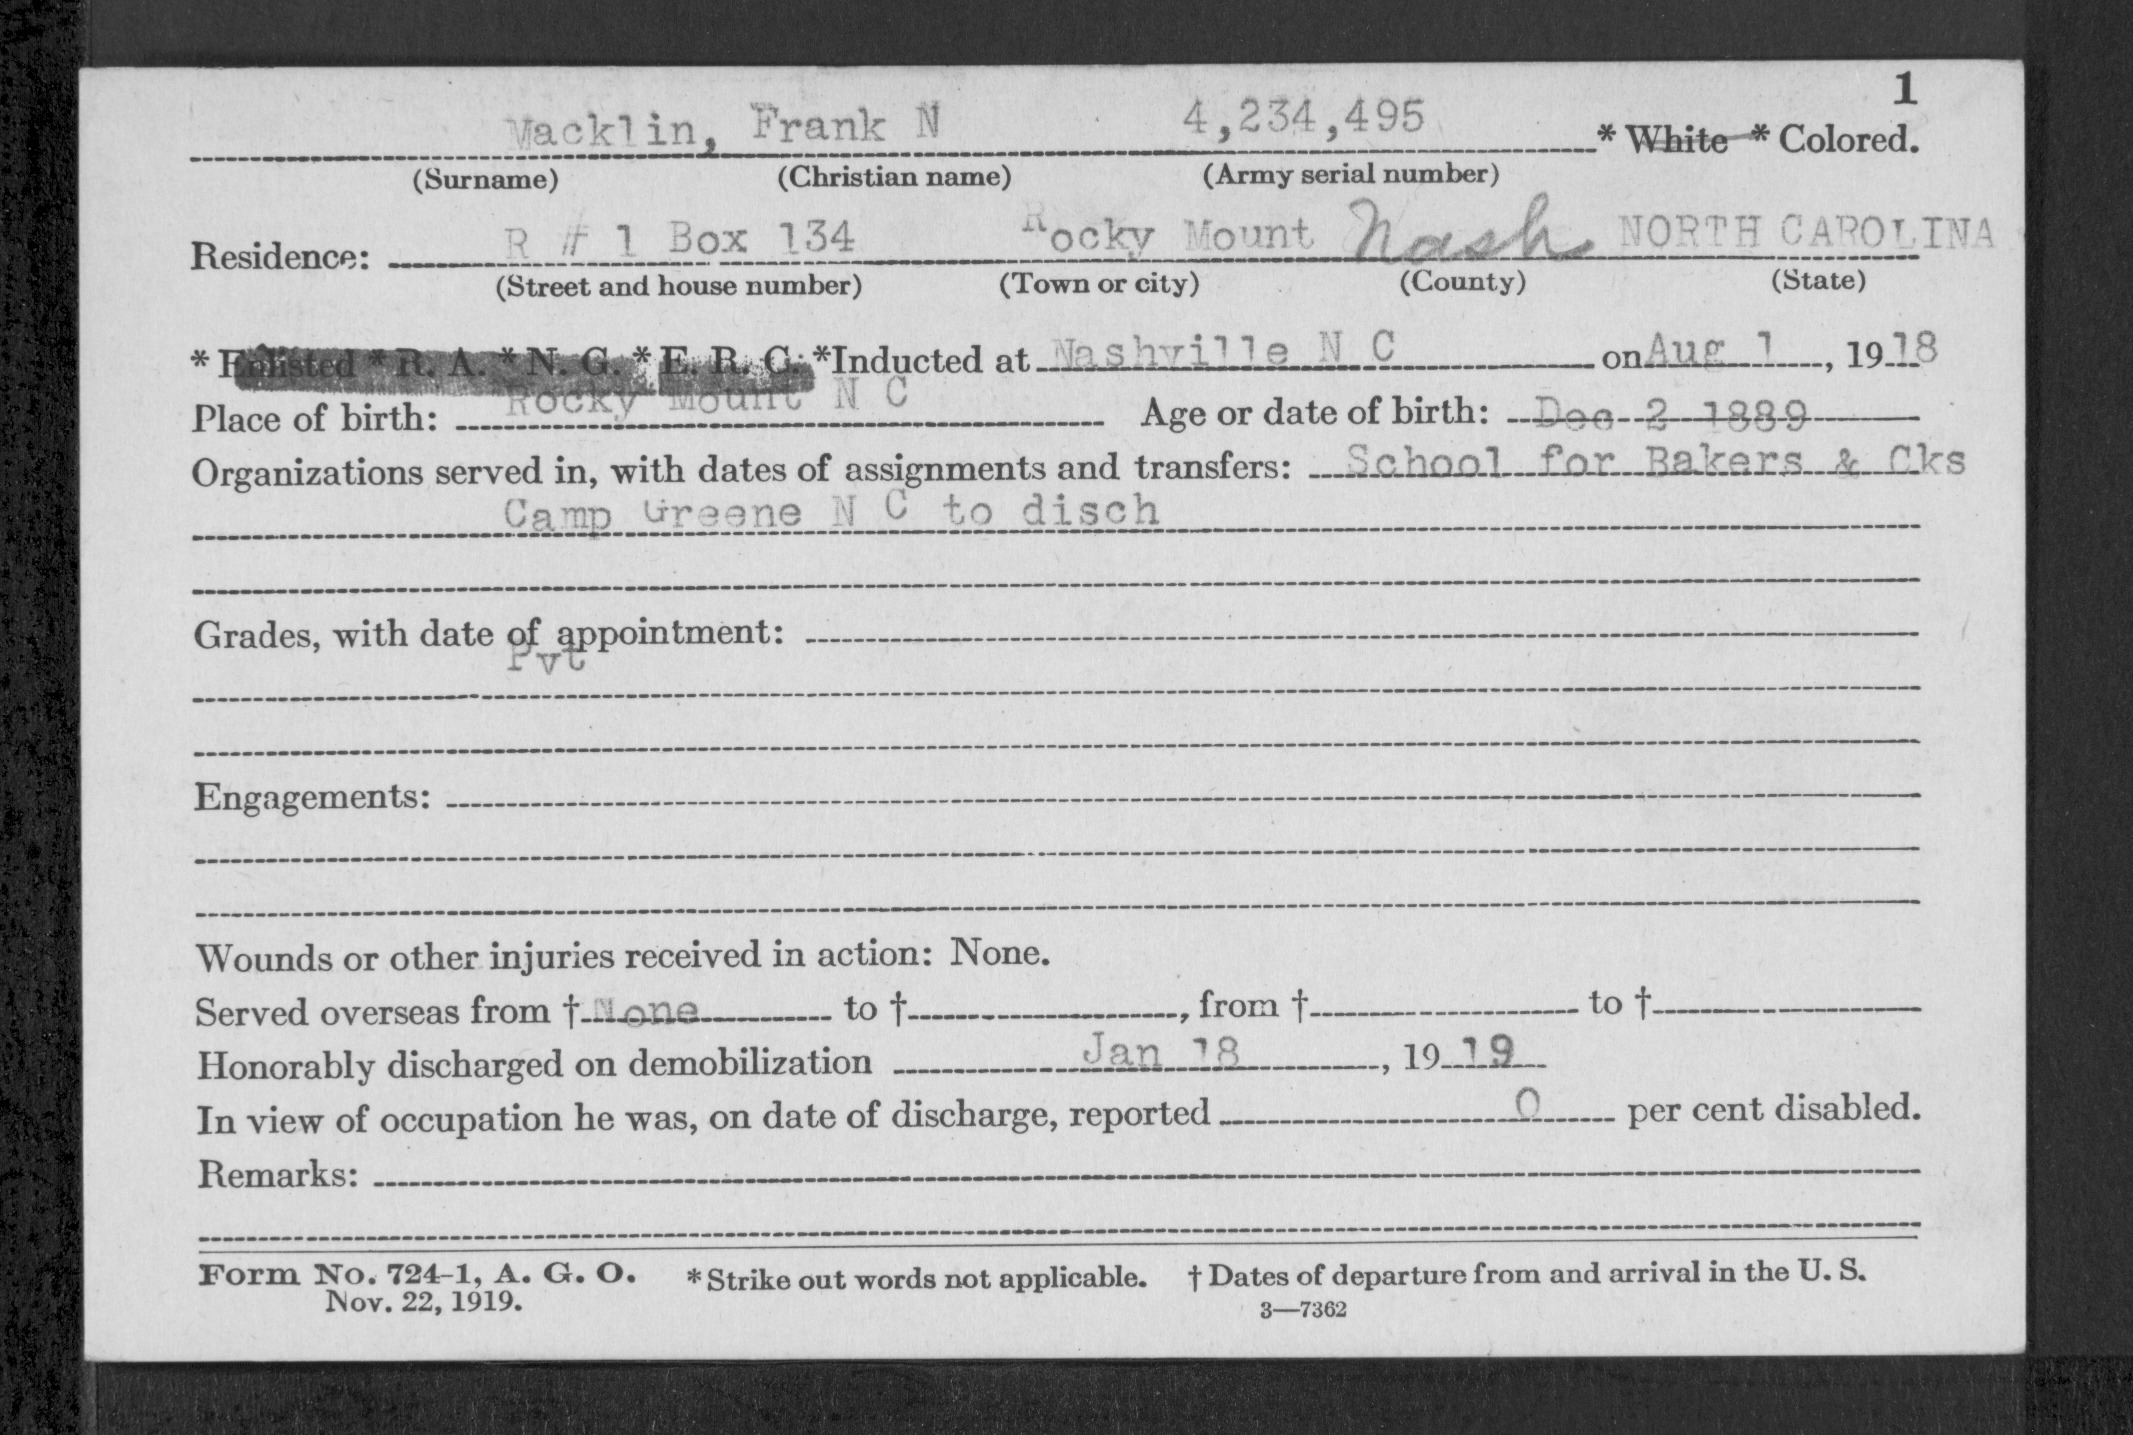 1
Macklin, Frank N 4,234,495 * White * Colored.
(Surname) (Christian name) (Army serial number)
Residence: R # 1 Box 134 Rocky Mount Nash NORTH CAROLINA
(Street and house number) (Town or city) (County) (State)
* Enlisted * R. A. * N. G. * E. R. C. *Inducted at Nashville N C on Aug 1, 1918
Place of birth: Rocky Mount N C Age or date of birth: Dec 2 1889
Organizations served in, with dates of assignments and transfers: School for Bakers & Cks
Camp Greene N C to disch
Grades, with date of appointment:
Pvt
Engagements:
Wounds or other injuries received in action: None.
Served overseas from † None to †, from † to †
Honorably discharged on demobilization Jan 18, 1919
In view of occupation he was, on date of discharge, reported 0 per cent disabled.
Remarks:
Form No. 724-1, A. G. O. * Strike out words not applicable. † Dates of departure from and arrival in the U. S.
Nov. 22, 1919. 3—7362